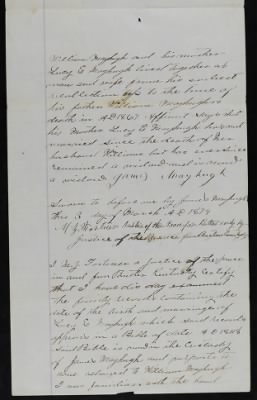 William Mayhugh and his mother
Lucy E Mayhugh lived together as
man and wife from his earliest
recollection up to the time of
his father William Mayhugh's
death in AD 1867 Affiant says that
his Mother Lucy E Mayhugh has not
married since the death of her
husband William but has ever since
remained a widow and is now
a widow James Mayhugh
Sworn to before me by James Mayhugh
this 3 day of March AD 1879
Justice of the peace
I M J a Justice of the peace
in and for Butler County Certify
that I have this day examined
the family record containing the
date of the birth and marriage of
Lucy E Mayhugh which said record
appears in a Bible of date AD
Said Bible is now in the Custody
of James Mayhugh and purports to
William Mayhugh
I am familiar with the hand